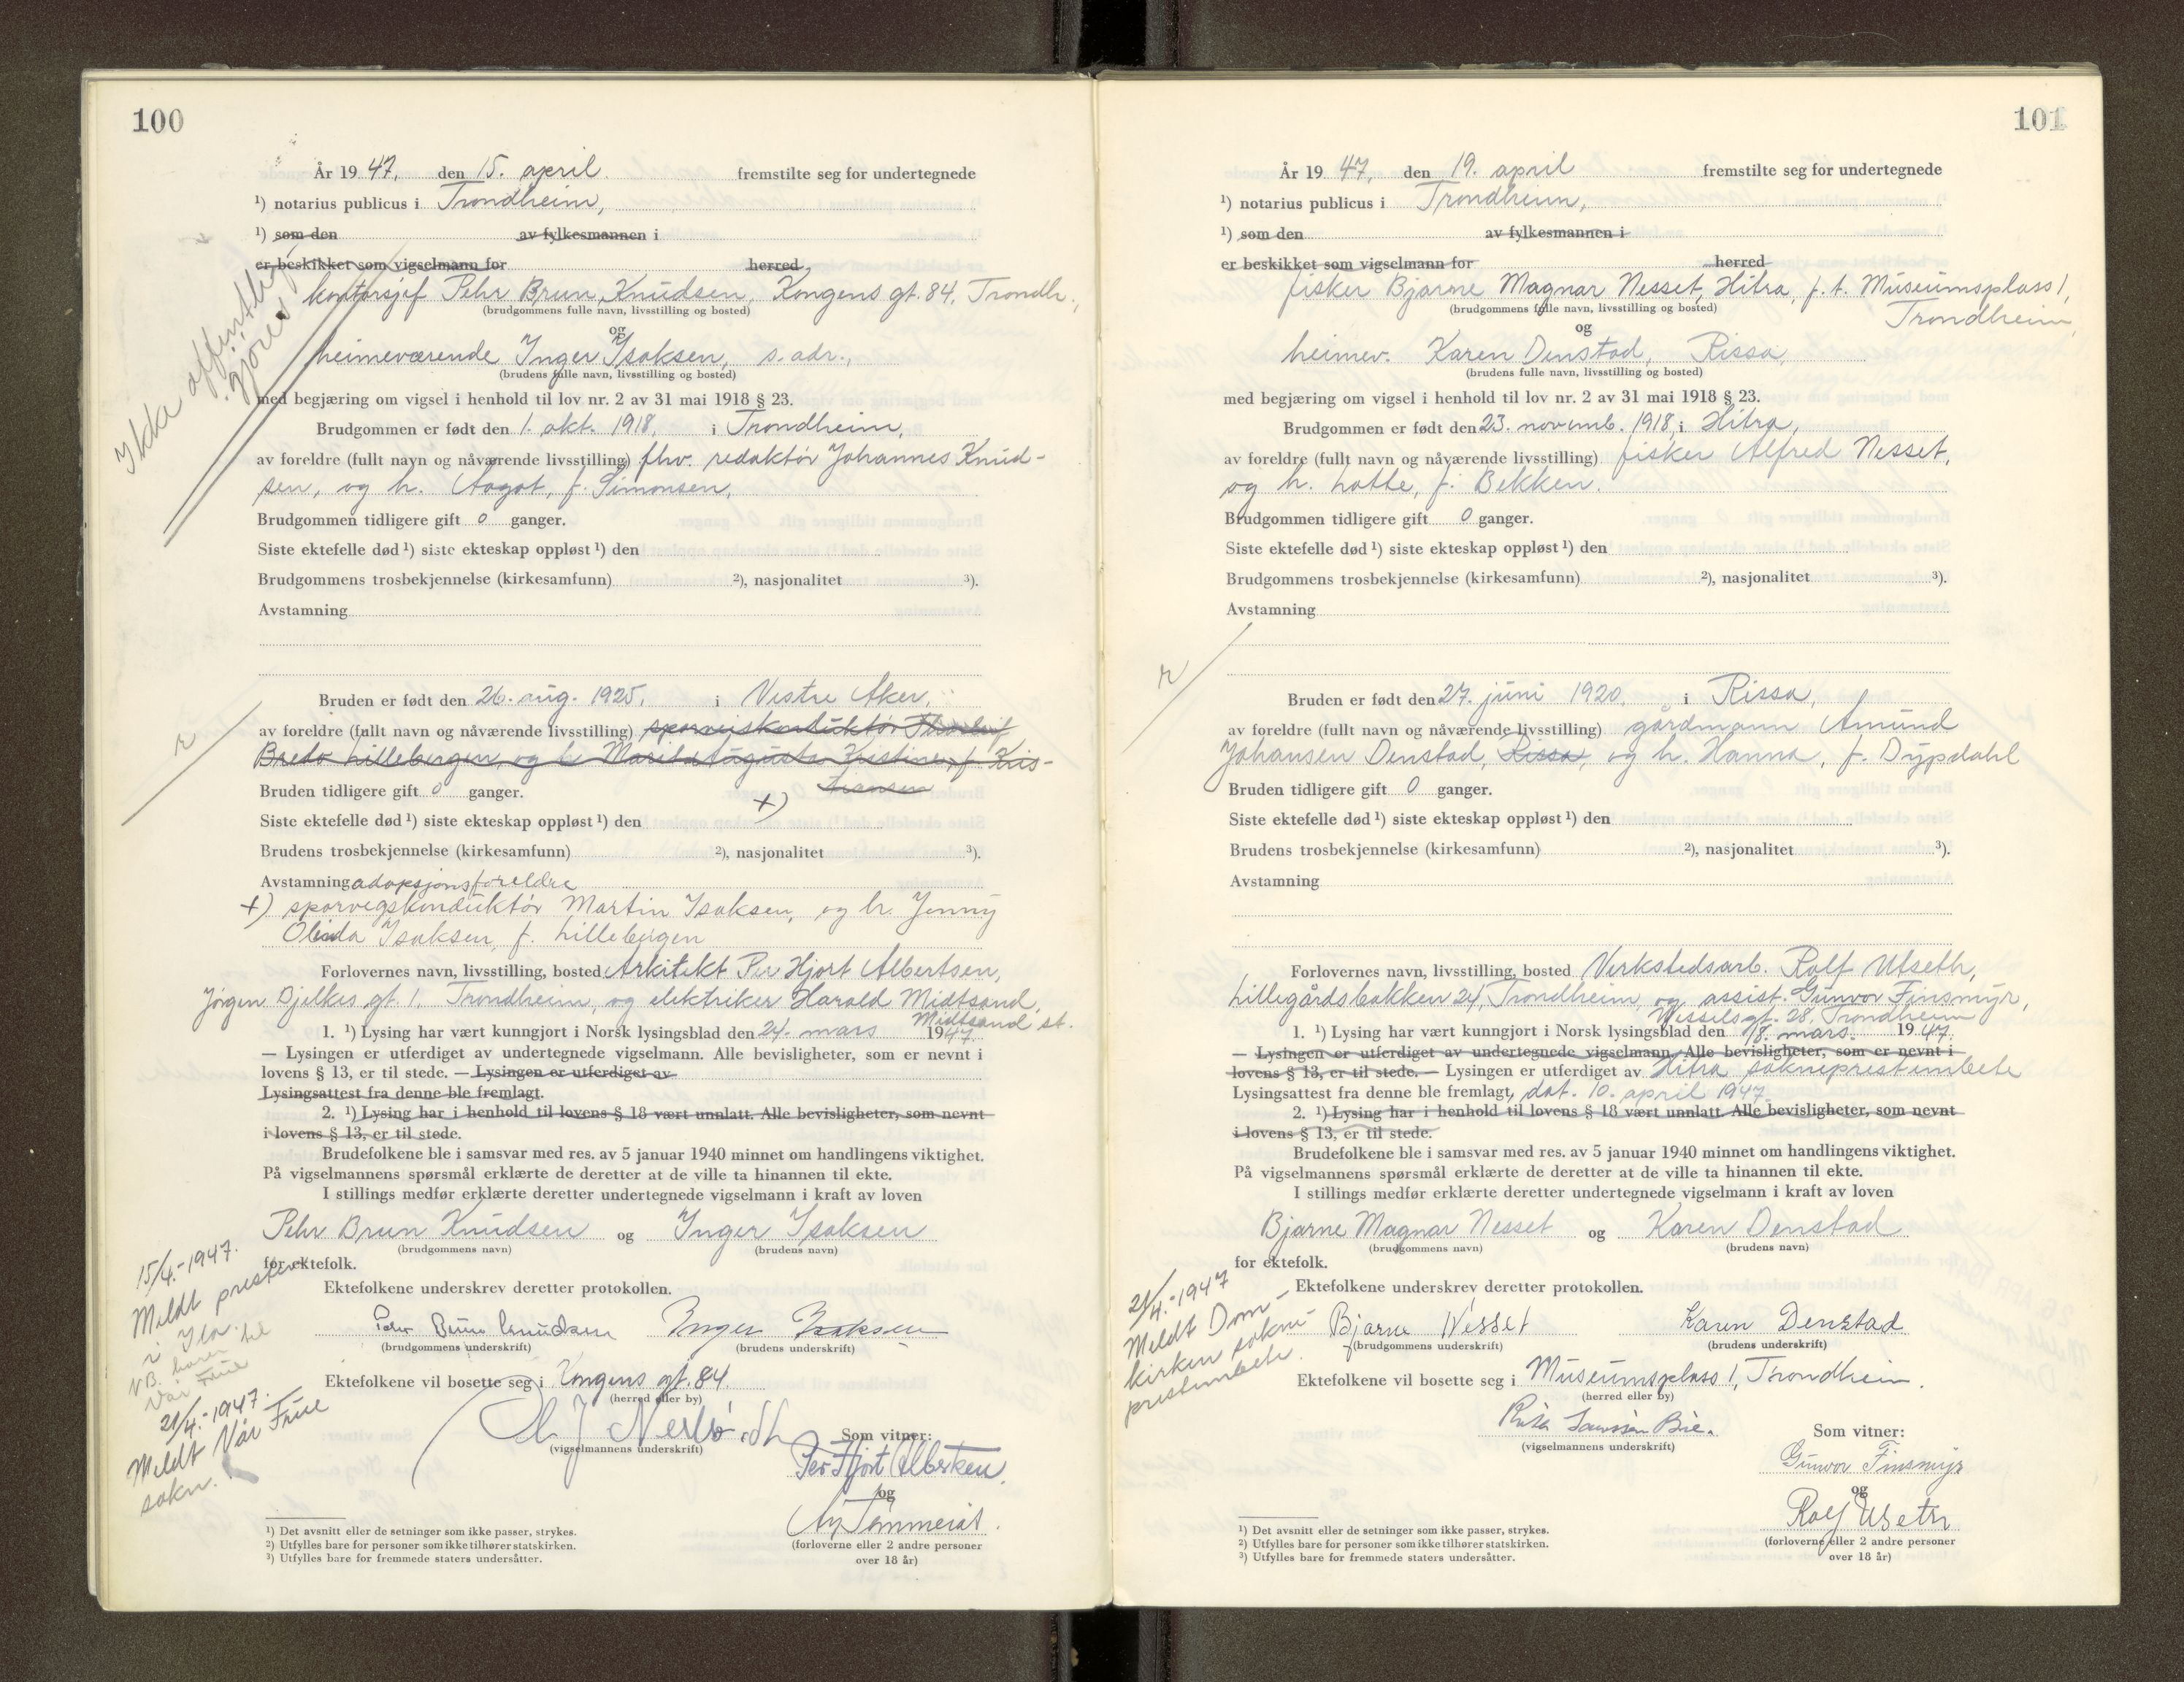 100
År 1947, den 15. april. fremstilte seg for undertegnede
¹) notarius publicus i Trondheim,
¹) som den av fylkesmannen i
er beskikket som vigselmann for herred
kontorsjef Pehr Brun Knudsen, Kongens gt. 84, Trondh.,
(brudgommens fulle navn, livsstilling og bosted)
og
heimeværende Inger Isaksen, s. adr.,
(brudens fulle navn, livsstilling og bosted)
Ikke offentlig
gjøres
med begjæring om vigsel i henhold til lov nr. 2 av 31 mai 1918 § 23.
Brudgommen er født den 1. okt. 1918, i Trondheim,
av foreldre (fullt navn og nåværende livsstilling) fhv. redaktør Johannes Knud-
sen, og h. Aagot, f. Simonsen,
Brudgommen tidligere gift 0 ganger.
Siste ektefelle død ¹) siste ekteskap oppløst ¹) den
Brudgommens trosbekjennelse (kirkesamfunn) ²), nasjonalitet ³).
Avstamning
r
Bruden er født den 26. aug. 1925, i Vestre Aker,
av foreldre (fullt navn og nåværende livsstilling) sporveiskonduktør
Bredo Lillebergen, og h. Augusta Kristine, f. Kris-
tiansen
Bruden tidligere gift 0 ganger.
+)
Siste ektefelle død ¹) siste ekteskap oppløst ¹) den
Brudens trosbekjennelse (kirkesamfunn) ²), nasjonalitet ³).
Avstamning adopsjonsforeldre
+) sporvegskonduktør Martin Isaksen, og h. Jenny
Isaksen, f. Lillebergen
Forlovernes navn, livsstilling, bosted Arkitekt Per Hjort Albertsen,
Jørgen Bjelkes gt. 1. Trondheim, og elektriker Harald Midtsand,
Midtsand st.
1. ¹) Lysing har vært kunngjort i Norsk lysingsblad den 24. mars 1947.
— Lysingen er utferdiget av undertegnede vigselmann. Alle bevisligheter, som er nevnt i
lovens § 13, er til stede. — Lysingen er utferdiget av
Lysingsattest fra denne ble fremlagt.
2. ¹) Lysing har i henhold til lovens § 18 vært unnlatt. Alle bevisligheter, som nevnt
i lovens § 13, er til stede.
Brudefolkene ble i samsvar med res. av 5 januar 1940 minnet om handlingens viktighet.
På vigselmannens spørsmål erklærte de deretter at de ville ta hinannen til ekte.
I stillings medfør erklærte deretter undertegnede vigselmann i kraft av loven
Pehr Brun Knudsen og Inger Isaksen
(brudgommens navn) (brudens navn)
for ektefolk.
Ektefolkene underskrev deretter protokollen.
Pehr Brun Knudsen Inger Isaksen
(brudgommens underskrift) (brudens underskrift)
Ektefolkene vil bosette seg i Kongens gt. 84.
(herred eller by)
(vigselmannens underskrift)
Som vitner:
Per Hjort Albertsen
og
(forloverne eller 2 andre personer
over 18 år)
15/4.-1947.
Meldt presten
i Ila.
NB. hører til
Vår Frue
21/4.-1947.
Meldt Vår Frue
sokn.
¹) Det avsnitt eller de setninger som ikke passer, strykes.
²) Utfylles bare for personer som ikke tilhører statskirken.
³) Utfylles bare for fremmede staters undersåtter.
101
År 1947, den 19. april fremstilte seg for undertegnede
¹) notarius publicus i Trondheim,
¹) som den av fylkesmannen i
er beskikket som vigselmann for herred
fisker Bjarne Magnar Nesset, Hitra, f. t. Museumsplass 1,
Trondheim,
(brudgommens fulle navn, livsstilling og bosted)
og
heimev. Karen Denstad, Rissa,
(brudens fulle navn, livsstilling og bosted)
med begjæring om vigsel i henhold til lov nr. 2 av 31 mai 1918 § 23.
Brudgommen er født den 23. novemb. 1918, i Hitra,
av foreldre (fullt navn og nåværende livsstilling) fisker Alfred Nesset,
og h. Lotte, f. Bekken.
Brudgommen tidligere gift 0 ganger.
Siste ektefelle død ¹) siste ekteskap oppløst ¹) den
Brudgommens trosbekjennelse (kirkesamfunn) ²), nasjonalitet ³).
Avstamning
r
Bruden er født den 27. juni 1920, i Rissa,
av foreldre (fullt navn og nåværende livsstilling) gårdmann Amund
Johansen Denstad, Rissa, og h. Hanna, f. Dypdahl
Bruden tidligere gift 0 ganger.
Siste ektefelle død ¹) siste ekteskap oppløst ¹) den
Brudens trosbekjennelse (kirkesamfunn) ²), nasjonalitet ³).
Avstamning
Forlovernes navn, livsstilling, bosted Verkstedsarb. Rolf Utseth,
Lillegårdsbakken 24, Trondheim, og assist. Gunvor Finsmyr,
Wesselsgt. 28, Trondheim
1. ¹) Lysing har vært kunngjort i Norsk lysingsblad den 18. mars 1947.
— Lysingen er utferdiget av undertegnede vigselmann. Alle bevisligheter, som er nevnt i
lovens § 13, er til stede. — Lysingen er utferdiget av Hitra sokneprestembete
Lysingsattest fra denne ble fremlagt, dat. 10. april 1947.
2. ¹) Lysing har i henhold til lovens § 18 vært unnlatt. Alle bevisligheter, som nevnt
i lovens § 13, er til stede.
Brudefolkene ble i samsvar med res. av 5 januar 1940 minnet om handlingens viktighet.
På vigselmannens spørsmål erklærte de deretter at de ville ta hinannen til ekte.
I stillings medfør erklærte deretter undertegnede vigselmann i kraft av loven
Bjarne Magnar Nesset og Karen Denstad
(brudgommens navn) (brudens navn)
for ektefolk.
Ektefolkene underskrev deretter protokollen.
Bjarne Nesset Karen Denstad
(brudgommens underskrift) (brudens underskrift)
Ektefolkene vil bosette seg i Museumsplass 1, Trondheim.
(herred eller by)
(vigselmannens underskrift)
Som vitner:
Gunvor Finsmyr
og
Rolf Utseth
(forloverne eller 2 andre personer
over 18 år)
21/4.-1947
Meldt Dom-
kirken sokne-
prestembete.
¹) Det avsnitt eller de setninger som ikke passer, strykes.
²) Utfylles bare for personer som ikke tilhører statskirken.
³) Utfylles bare for fremmede staters undersåtter.